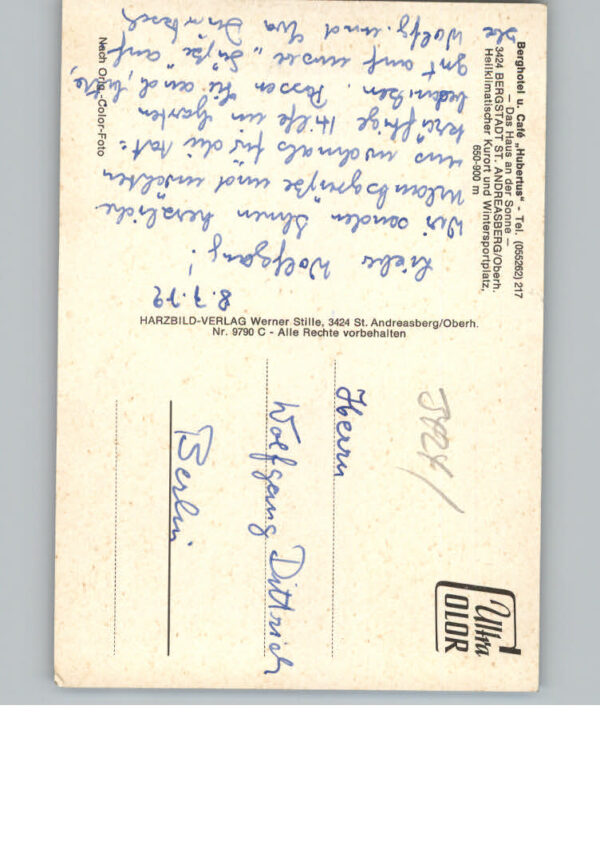 Berghotel u. Café „Hubertus" - Tel. (055262) 217
– Das Haus an der Sonne –
3424 BERGSTADT ST. ANDREASBERG/Oberh.
Heilklimatischer Kurort und Wintersportplatz,
650-900 m
8.7.79
Lieber Wolfgang!
Wir senden Ihnen herzliche
Urlaubsgrüße und möchten
uns nochmals für die tat-
kräftige Hilfe im Garten
bedanken. Passen Sie auch, bitte,
gut auf unsere „Süße" auf
Wolfg. und Eva
Nach Orig.-Color-Foto
HARZBILD-VERLAG Werner Stille, 3424 St. Andreasberg/Oberh.
Nr. 9790 C - Alle Rechte vorbehalten
Herrn
Wolfgang Dittrich
Berlin
Ultra
COLOR